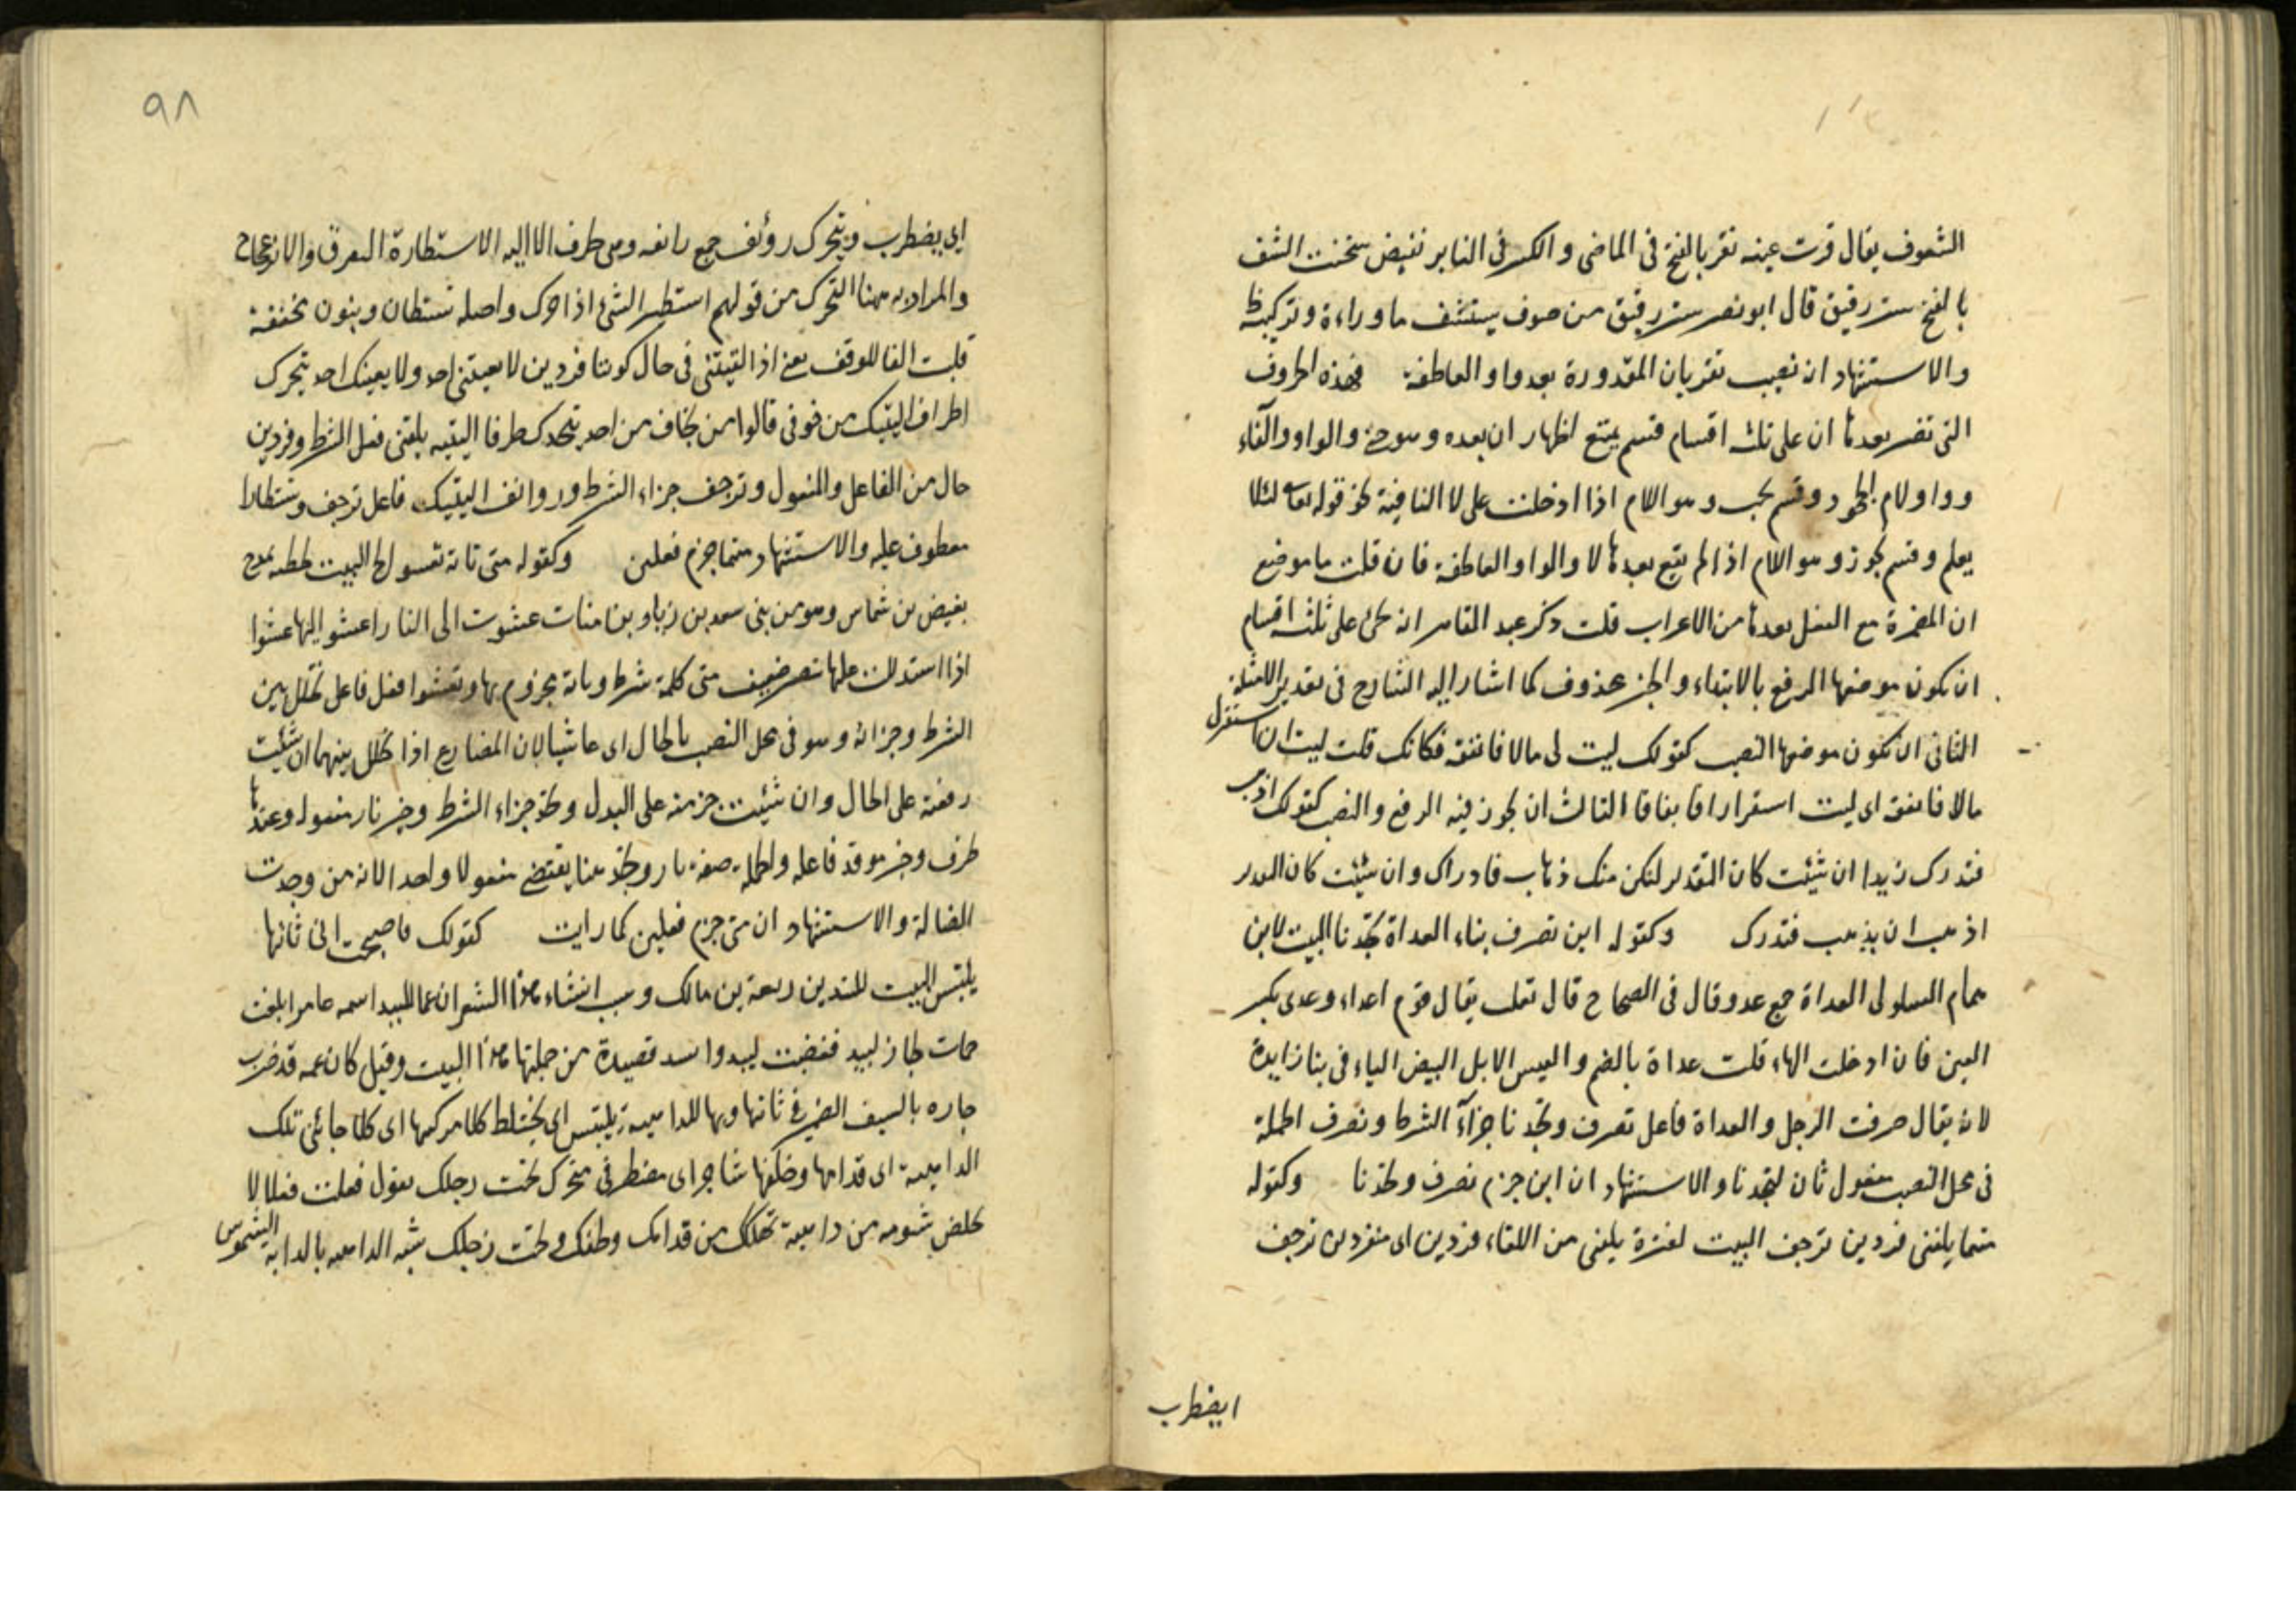 الشفوف يقال قرت عينه تقر بالفتح فى الماضى والكسر فى الغابر نقيض سخنت الشف
بالفتح ستر رقيق قال ابو نصر ستر رقيق من صوف يستشف ما وراءه وتركيبه ظ
والاستشهاد ان نصب تقر بان المقدورة بعد واو العاطفة فهذه الحروف
التى تضمر بعدها ان على ثلث اقسام قسم يمتع اظهار ان بعده وهو حتى والواو والفاء
وواو ولام الجحود وقسم يجب وهو اللام اذا ادخلت على لا النافية نحو قوله تعا لئلا
يعلم وقسم يجوز وهو اللام اذا لم يقع بعدها لا والواو العاطفة فان قلت ما موضع
ان المضمرة مع الفعل بعدها من الاعراب قلت ذكر عبد القاهر انه يجئ على ثلثه اقسام
ان يكون موضعها الرفع بالابتداء والخبر محذوف كما اشار اليه الشارح فى تقدير الامثلة
الثانى ان تكون موضعها النصب كقولك ليت لى مالا فانفقه فكانك قلت ليت ان استقر لى
مالا فانفقه اى ليت استقرارا فانفاقا الثالث ان يجوز فيه الرفع والنصب كقولك اذهب
فتدرك زيدا ان شئت كان التقدير لتكن منك ذهاب فادراك وان شئت كان التقدير
اذهب ان يذهب فتدرك وكقوله اين تصرف بناء العداة تجدنا البيت لابن
همام السلولى العداة جمع عدو قال فى الصحاح قال ثعلب يقال قوم اعداء وعدى بكسر
العين فان ادخلت الهاء قلت عداة بالضم والعيس الابل البيض الباء فى بنا زايدة
لانه يقال صرفت الرجل والعداة فاعل تصرف وتجدنا جزاء الشرط وتصرف الجملة
فى محل النصب مفعول ثان لتجدنا والاستشهاد ان اين جزم تصرف وتجدنا وكقوله
متما يلقنى فردين ترجف البيت لعنترة يلقنى من اللقاء فردين اى منفردين ترجف
ايضطرب
٩٨
اى يضطرب ويتحرك روٌنف جمع رانفه وهى طرف الاليه الاستطارة التفرق والانزعاج
والمراد به ههنا التحرك من قولهم استطير الشئ اذا حرك واصله تستطان وبنون مخففة
قلبت الفا للوقف يعنى اذا لقيتنى فى حال كوننا فردين لا يعيننى احد ولا يعينك احد يتحرك
اطراف اليتيك من خوفى قالوا من يخاف من احد يتحرك طرفا اليتيه يلقنى فعل الشرط وفردين
حال من الفاعل والمفعول وترجف جزاء الشرط وروانف اليتيك فاعل ترجف وتستطارا
معطوف عليه والاستشهاد متما جزم فعلين وكقوله متى تاته تعشو الخ البيت لحطيه يمدح
بغيض بن شماس وهو من بنى سعد بن زياد بن منات عشوت الى النار اعشو اليها عشوا
اذا استدللت عليها ببصر ضعيف متى كلمة شرط وتاته مجزوم بها وتعشوا فعل فاعل تخلل بين
الشرط وجزائه وهو فى محل النصب بالحال اى عاشيا لان المضارع اذا تخلل بينهما ان شئت
رفعته على الحال وان شئت جزمته على البدل وتجد جزاء الشرط وخير نار مفعوله وعندها
ظرف وخير موقد فاعله والجملة صفة نار وتجد هنا يقتضى مفعولا واحدا لانه من وجدت
الضالة والاستشهاد ان متى جزم فعلين كما رايت كقولك فاصبحت انى تاتها
يلتبس البيت للبيد بن ربيعة بن مالك وسبب انشاء هذا الشعر ان عما للبيد اسمه عامرا بلغت
جارٍ لبيد فغضبت لبيد وانشد قصيدة من جملتها هذا البيت وقيل كان عمه قد ضرب
جاره بالسيف الضمير فى تاتها وبها للداهية يلتبس اى يختلط كلا مركبها اى كلا جانبى تلك
الداهية اى قدامها وخلفها شاجر اى مضطر فى متحرك تحت رجلك يقول فعلت فعلا لا
تخلص بشومه من داهية تهلك من قدامك وخلفك وتحت رجلك شبه الداهيه بالدابه الشموس